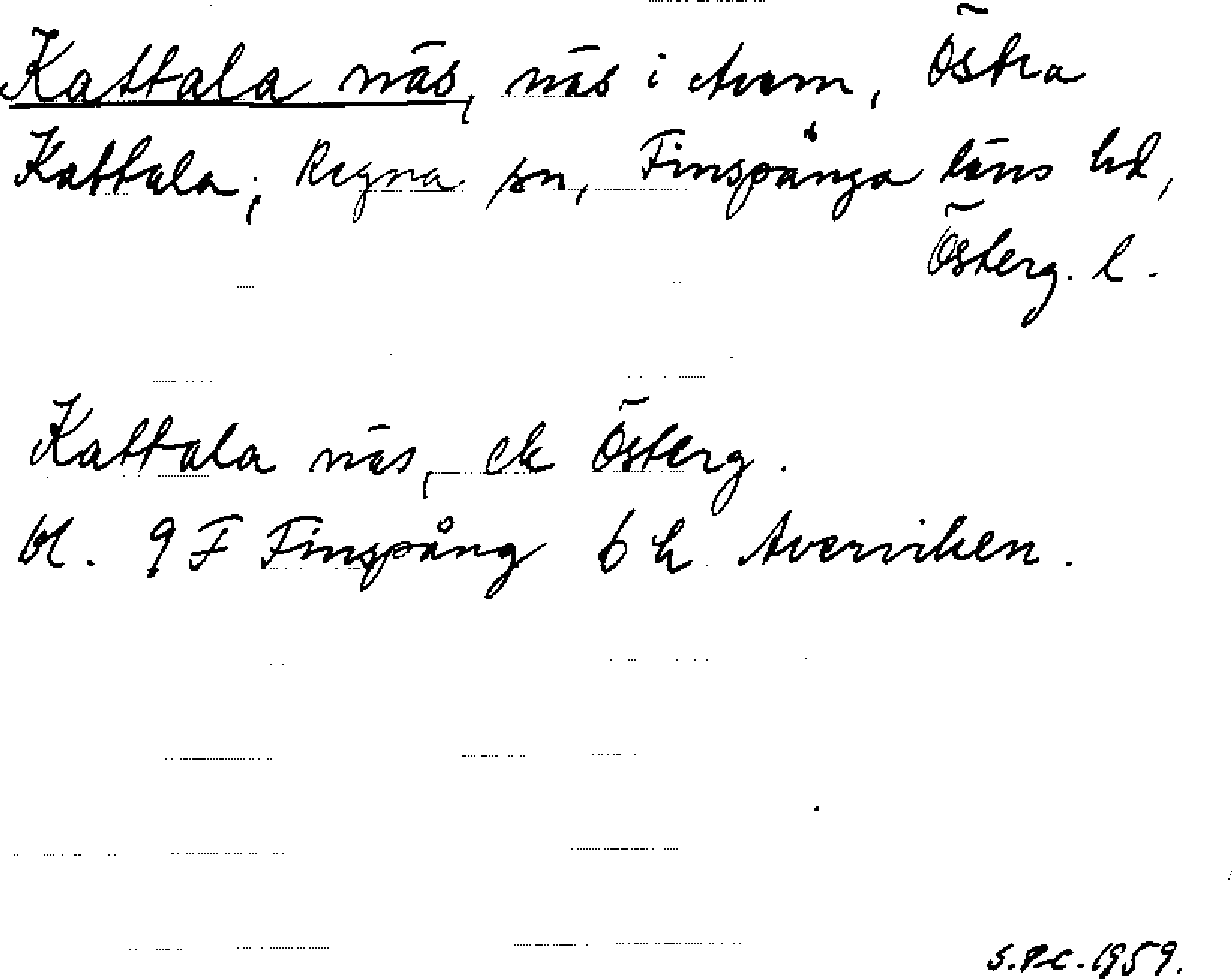 Kattala näs, näs i Avern, Östra
Kattala; Regna sn, Finspånga läns hd,
Österg. l.
Kattala näs, ek Österg.
bl. 9 F Finspång 6 h Averviken.
S.P.C. 1959.